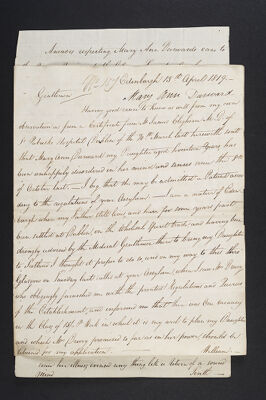 Answers respecting Mary Ann Durward's case to
Edinburgh 18th April 1819.
Gentlemen
Mary Ann Durward
Having good cause to know as well from my own
observation as from a Certificate from M. James Cleghorn M.D. of
St Patricks Hospital Dublin of the 30th March last herewith sent
that Mary Ann Durward my Daughter aged Nineteen Years has
been unhappily disordered in her mind and senses since the 8th
of October last — I beg that she may be admitted a Patient accor
ding to the regulations of your Asylum — I am a native of Edin
burgh where my Father still lives, and have for some years past
been settled at Dublin, in the Woolend Spirit trade and having been
strongly advised by the Medical Gentlemen there to bring my Daughter
to Scotland I thought it proper to do so and on my way to this thro
Glasgow on Tuesday last calls at your Asylum, where I saw Mr Drury
who obligingly furnished me with the printed Regulations and Queries
of the Establishment and informed me that there was one vacancy
in the Class of 15/ P. Week in which it is my wish to place my Daughter
and which Mr Drury promised so far as in her power should be
retained for my application
William
mind